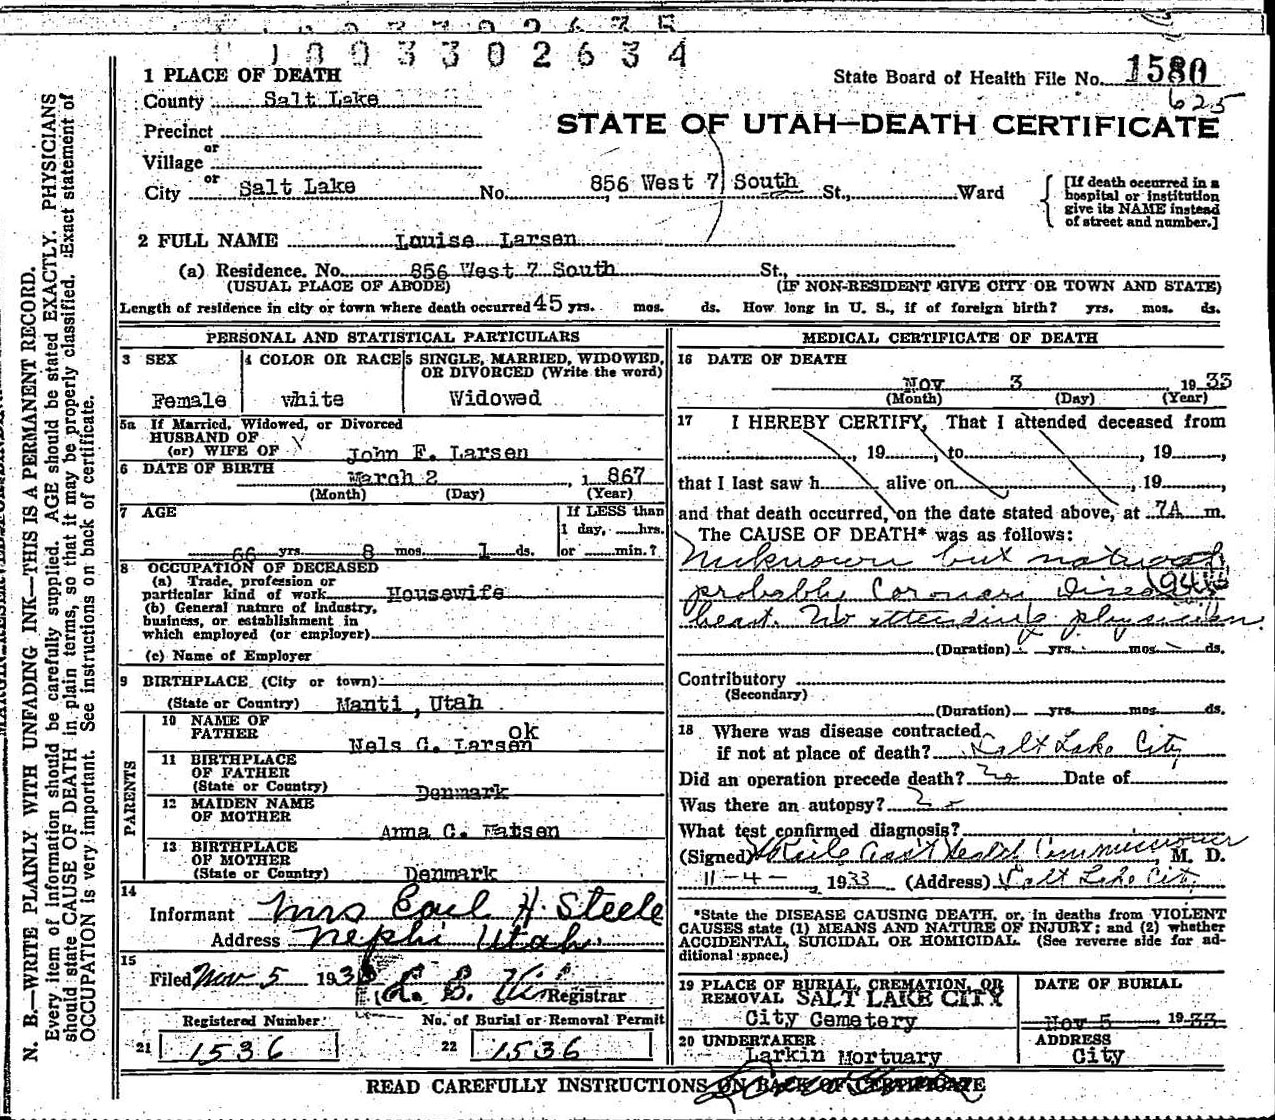 1003302634
1 PLACE OF DEATH
State Board of Health File No. 1580
County Salt Lake
625
STATE OF UTAH—DEATH CERTIFICATE
Precinct
or
Village
or
City Salt Lake No. 856 West 7 South St., Ward
[If death occurred in a
hospital or institution
give its NAME instead
of street and number.]
2 FULL NAME Louise Larsen
(a) Residence. No. 856 West 7 South St.,
(USUAL PLACE OF ABODE) (IF NON-RESIDENT GIVE CITY OR TOWN AND STATE)
Length of residence in city or town where death occurred 45 yrs. mos. ds. How long in U. S., if of foreign birth? yrs. mos. ds.
PERSONAL AND STATISTICAL PARTICULARS
3 SEX
Female
4 COLOR OR RACE
white
5 SINGLE, MARRIED, WIDOWED,
OR DIVORCED (Write the word)
Widowed
5a If Married, Widowed, or Divorced
HUSBAND OF
(or) WIFE OF John F. Larsen
6 DATE OF BIRTH
March 2, 1867
(Month) (Day) (Year)
7 AGE
66 yrs. 8 mos. 1 ds.
If LESS than
1 day, hrs.
or min.?
8 OCCUPATION OF DECEASED
(a) Trade, profession or
particular kind of work Housewife
(b) General nature of industry,
business, or establishment in
which employed (or employer)
(c) Name of Employer
9 BIRTHPLACE (City or town)
(State or Country) Manti, Utah
PARENTS
10 NAME OF
FATHER
ok
Nels C. Larsen
11 BIRTHPLACE
OF FATHER
(State or Country) Denmark
12 MAIDEN NAME
OF MOTHER
Anna C.
13 BIRTHPLACE
OF MOTHER
(State or Country) Denmark
14
Informant Mrs Earl H Steele
Address Nephi Utah
15
Filed Nov 5 193
Registrar
Registered Number
21 1536
No. of Burial or Removal Permit
22 1536
MEDICAL CERTIFICATE OF DEATH
16 DATE OF DEATH
Nov 3 1933
(Month) (Day) (Year)
17 I HEREBY CERTIFY, That I attended deceased from
, 19 , to , 19 ,
that I last saw h alive on , 19 ,
and that death occurred, on the date stated above, at 7A m.
The CAUSE OF DEATH* was as follows:
Unknown but natural
probably Coronary Disease
heart. No attending physician.
(Duration) yrs. mos. ds.
Contributory
(Secondary)
(Duration) yrs. mos. ds.
18 Where was disease contracted
if not at place of death? Salt Lake City
Did an operation precede death? No Date of
Was there an autopsy? No
What test confirmed diagnosis?
(Signed) Asst Health Commissioner, M. D.
11-4-, 1933 (Address) Salt Lake City
*State the DISEASE CAUSING DEATH, or, in deaths from VIOLENT
CAUSES state (1) MEANS AND NATURE OF INJURY; and (2) whether
ACCIDENTAL, SUICIDAL OR HOMICIDAL. (See reverse side for ad-
ditional space.)
19 PLACE OF BURIAL, CREMATION, OR
REMOVAL SALT LAKE CITY
City Cemetery
DATE OF BURIAL
Nov 5, 1933
20 UNDERTAKER
Larkin Mortuary
ADDRESS
City
READ CAREFULLY INSTRUCTIONS ON BACK OF CERTIFICATE
N. B.—WRITE PLAINLY WITH UNFADING INK—THIS IS A PERMANENT RECORD.
Every item of information should be carefully supplied. AGE should be stated EXACTLY. PHYSICIANS
should state CAUSE OF DEATH in plain terms, so that it may be properly classified. Exact statement of
OCCUPATION is very important. See instructions on back of certificate.